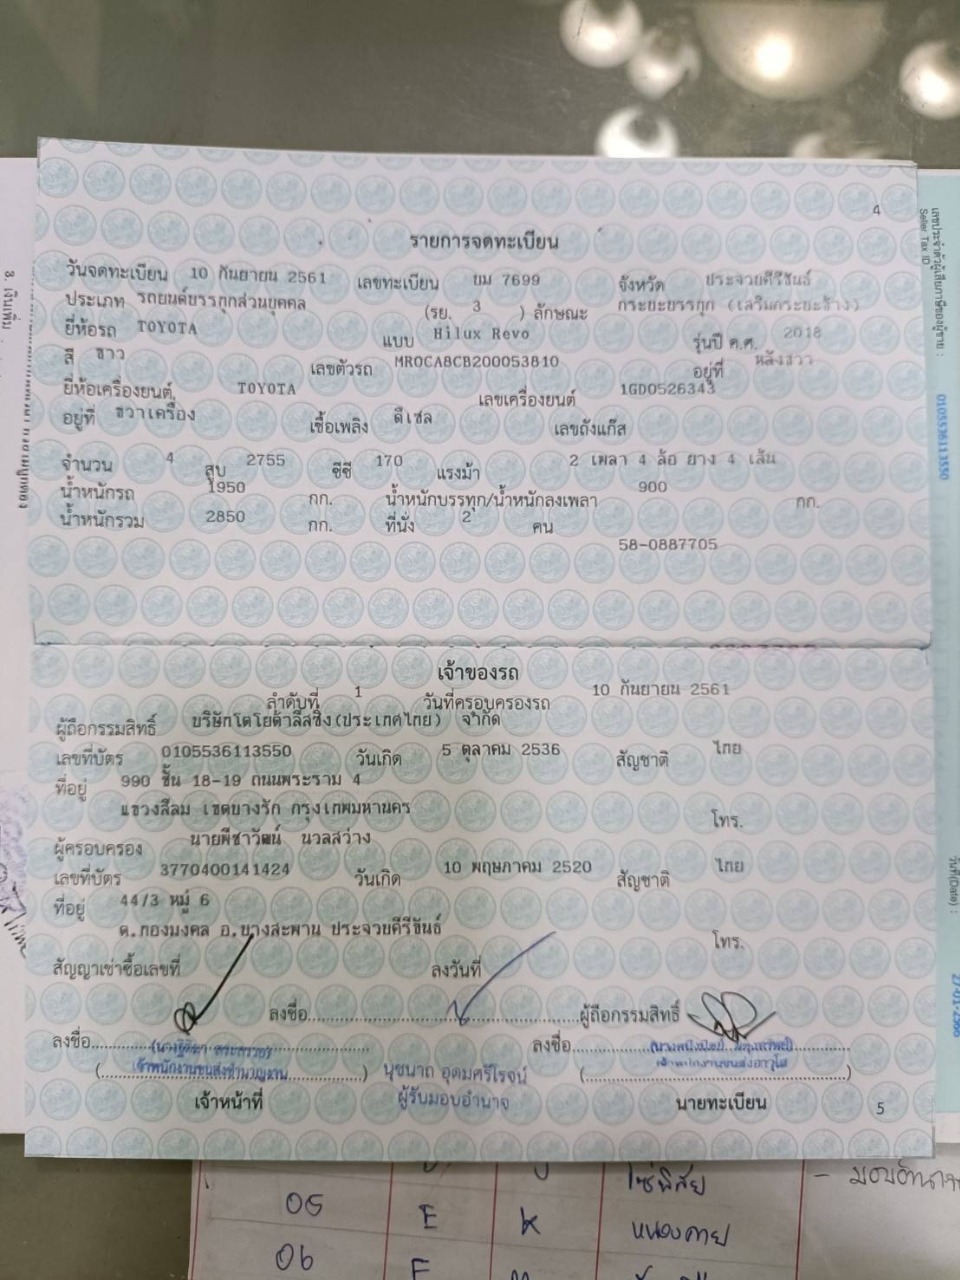 4
รายการจดทะเบียน
วันจดทะเบียน 10 กันยายน 2561 เลขทะเบียน ยม 7699 จังหวัด ประจวบคีรีขันธ์
ประเภท รถยนต์บรรทุกส่วนบุคคล (รย. 3 ) ลักษณะ กระบะบรรทุก (เสริมกระบะข้าง)
ยี่ห้อรถ TOYOTA แบบ Hilux Revo รุ่นปี ค.ศ. 2018
สี ขาว เลขตัวรถ MR0CA8CB200053810 อยู่ที่ หลังขวา
ยี่ห้อเครื่องยนต์ TOYOTA เลขเครื่องยนต์ 1GD0526343
อยู่ที่ ขวาเครื่อง เชื้อเพลิง ดีเซล เลขถังแก๊ส
จำนวน 4 สูบ 2755 ซีซี 170 แรงม้า 2 เพลา 4 ล้อ ยาง 4 เส้น
น้ำหนักรถ 1950 กก. น้ำหนักบรรทุก/น้ำหนักลงเพลา 900 กก.
น้ำหนักรวม 2850 กก. ที่นั่ง 2 คน
58-0887705
เจ้าของรถ
ลำดับที่ 1 วันที่ครอบครองรถ 10 กันยายน 2561
ผู้ถือกรรมสิทธิ์ บริษัทโตโยต้าลีสซิ่ง(ประเทศไทย) จำกัด
เลขที่บัตร 0105536113550 วันเกิด 5 ตุลาคม 2536 สัญชาติ ไทย
ที่อยู่ 990 ชั้น 18-19 ถนนพระราม 4
แขวงสีลม เขตบางรัก กรุงเทพมหานคร โทร.
ผู้ครอบครอง นายพีชาวัฒน์ นวลสว่าง
เลขที่บัตร 3770400141424 วันเกิด 10 พฤษภาคม 2520 สัญชาติ ไทย
ที่อยู่ 44/3 หมู่ 6
ต.ทองมงคล อ.บางสะพาน ประจวบคีรีขันธ์ โทร.
สัญญาเช่าซื้อเลขที่ ลงวันที่
ลงชื่อ ผู้ถือกรรมสิทธิ์
ลงชื่อ ลงชื่อ
เจ้าพนักงานขนส่งชำนาญงาน เจ้าพนักงานขนส่งอาวุโส
นุชนาถ อุดมศรีโรจน์
เจ้าหน้าที่ ผู้รับมอบอำนาจ นายทะเบียน
5
เลขประจำตัวผู้เสียภาษีของผู้ขาย :
Seller Tax ID
0105536113550
วันที่(Date) :
3. เงินเพิ่ม
โซ่พิสัย
- มอบอำนาจ
05 E K หนองคาย
06